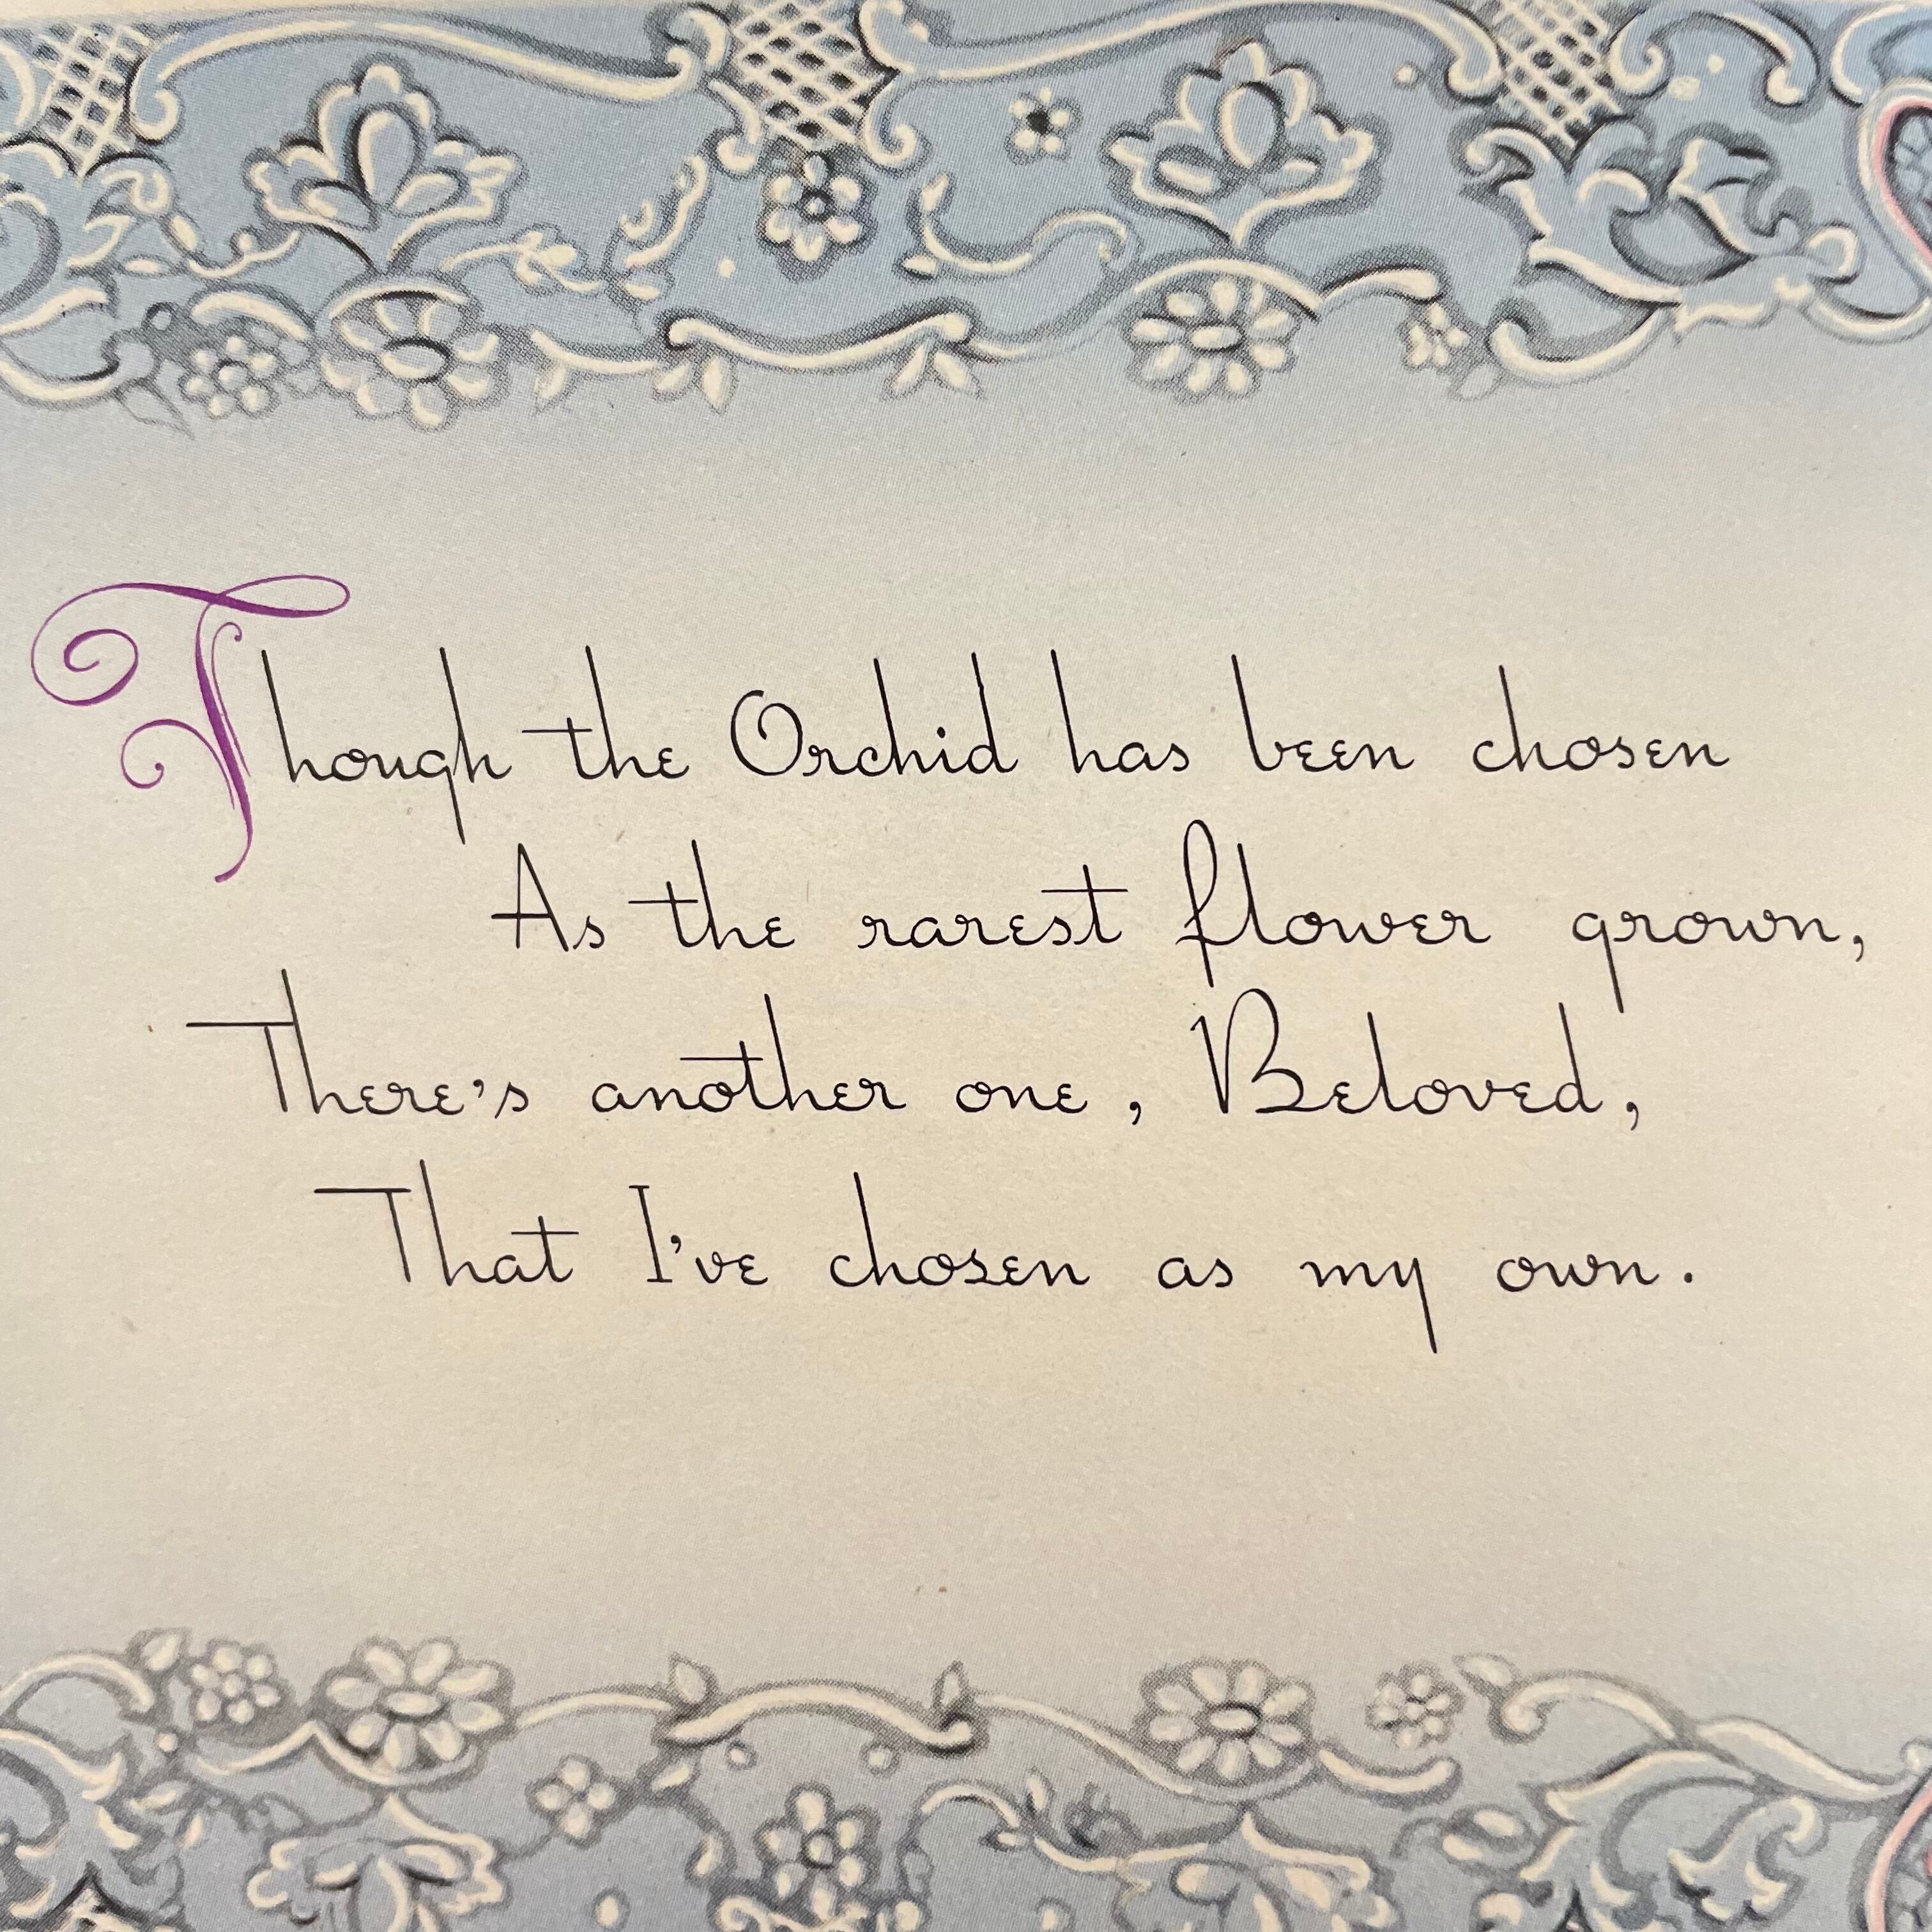 Though the Orchid has been chosen
As the rarest flower grown,
There's another one, Beloved,
That I've chosen as my own.